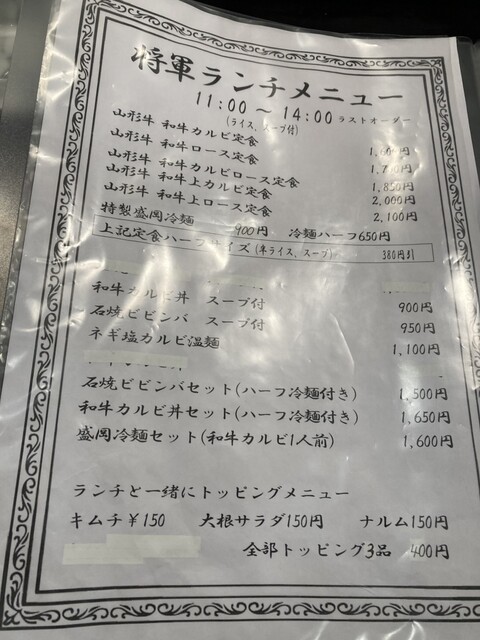 将軍ランチメニュー
11:00 ～ 14:00 ラストオーダー
(ライス、スープ付)
山形牛 和牛カルビ定食 1,600円
山形牛 和牛ロース定食 1,700円
山形牛 和牛カルビロース定食 1,850円
山形牛 和牛上カルビ定食 2,000円
山形牛 和牛上ロース定食 2,100円
特製盛岡冷麺 900円 冷麺ハーフ650円
上記定食ハーフサイズ (半ライス、スープ) 380円引
和牛カルビ丼 スープ付 900円
石焼ビビンバ スープ付 950円
ネギ塩カルビ温麺 1,100円
石焼ビビンバセット(ハーフ冷麺付き) 1,500円
和牛カルビ丼セット(ハーフ冷麺付き) 1,650円
盛岡冷麺セット(和牛カルビ1人前) 1,600円
ランチと一緒にトッピングメニュー
キムチ￥150 大根サラダ150円 ナルム150円
全部トッピング3品 400円